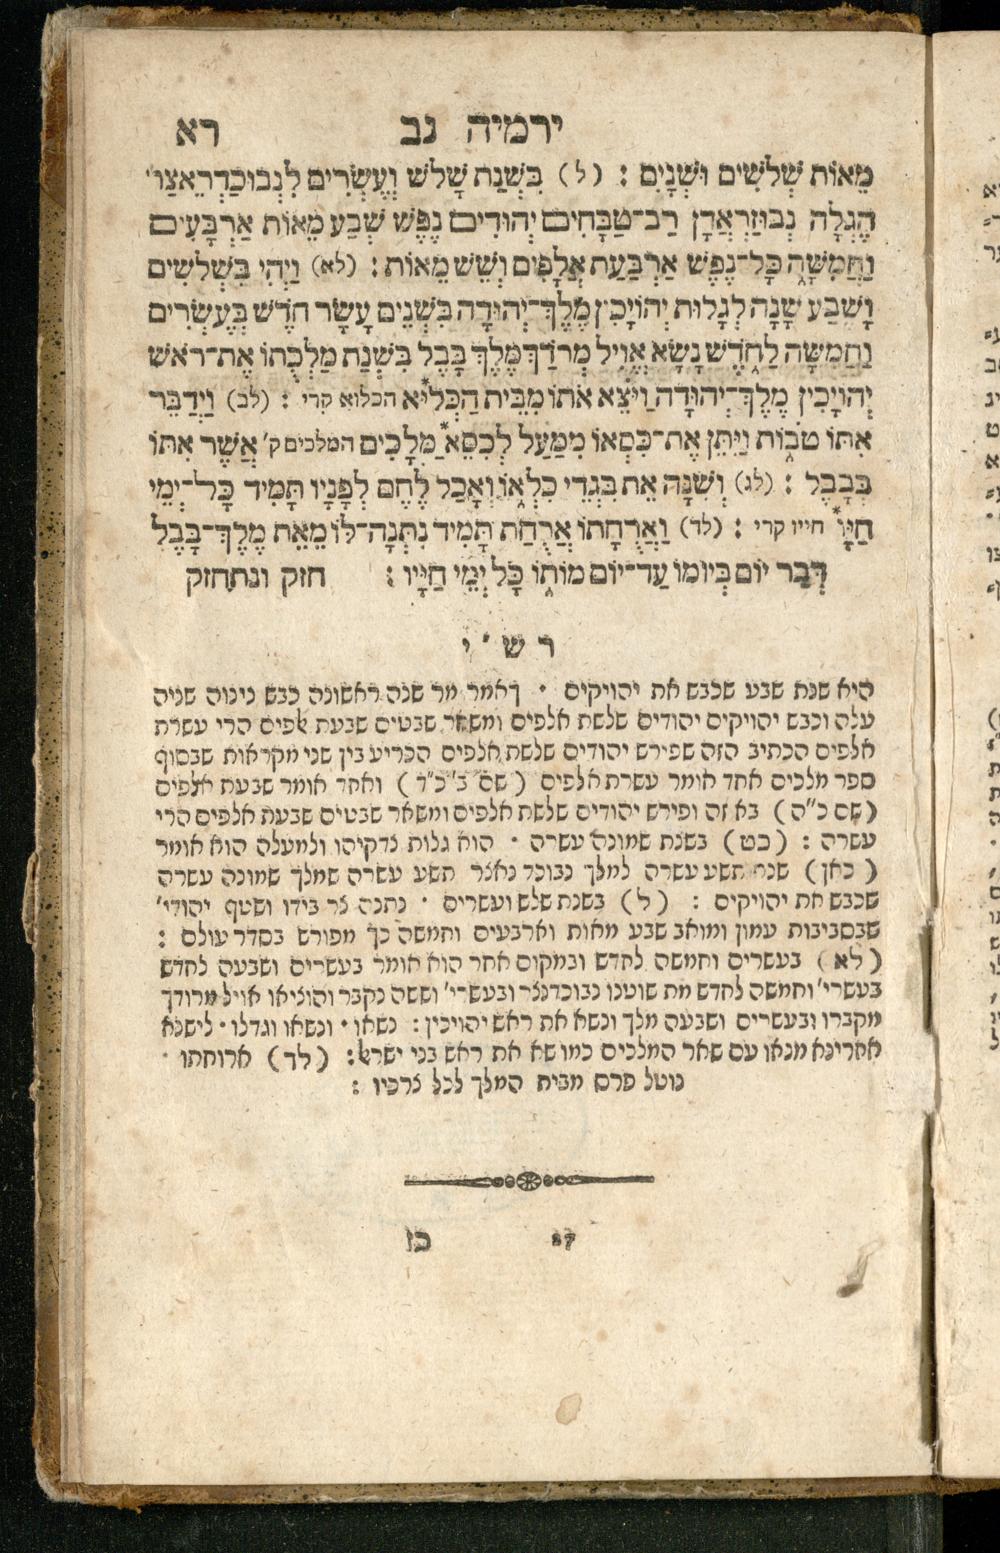 ירמיה נב רא
מֵאוֹת שְׁלֹשִׁים וּשְׁנָיִם : (ל) בִּשְׁנַת שָׁלֹשׁ וְעֶשְׂרִים לִנְבוּכַדְרֶאצַּר
הֶגְלָה נְבוּזַרְאֲדָן רַב־טַבָּחִים יְהוּדִים נֶפֶשׁ שְׁבַע מֵאוֹת אַרְבָּעִים
וַחֲמִשָּׁה כָּל־נֶפֶשׁ אַרְבַּעַת אֲלָפִים וְשֵׁשׁ מֵאוֹת : (לא) וַיְהִי בִשְׁלֹשִׁים
וָשֶׁבַע שָׁנָה לְגָלוּת יְהוֹיָכִין מֶלֶךְ־יְהוּדָה בִּשְׁנֵים עָשָׂר חֹדֶשׁ בְּעֶשְׂרִים
וַחֲמִשָּׁה לַחֹדֶשׁ נָשָׂא אֱוִיל מְרֹדַךְ מֶלֶךְ בָּבֶל בִּשְׁנַת מַלְכֻתוֹ אֶת־רֹאשׁ
יְהוֹיָכִין מֶלֶךְ־יְהוּדָה וַיֹּצֵא אֹתוֹ מִבֵּית הַכְּלִיא הכלוא קרי : (לב) וַיְדַבֵּר
אִתּוֹ טֹבוֹת וַיִּתֵּן אֶת־כִּסְאוֹ מִמַּעַל לְכִסֵּא מְלָכִים המלכים ק' אֲשֶׁר אִתּוֹ
בְּבָבֶל : (לג) וְשִׁנָּה אֵת בִּגְדֵי כִלְאוֹ וְאָכַל לֶחֶם לְפָנָיו תָּמִיד כָּל־יְמֵי
חַיָּו חייו קרי : (לד) וַאֲרֻחָתוֹ אֲרֻחַת תָּמִיד נִתְּנָה־לּוֹ מֵאֵת מֶלֶךְ־בָּבֶל
דְּבַר יוֹם בְּיוֹמוֹ עַד־יוֹם מוֹתוֹ כָּל יְמֵי חַיָּיו : חזק ונתחזק
רש"י
היא שנת שבע שכבש את יהויקים · דאמר מר שנה ראשונה כבש נינוה שניה
עלה וכבש יהויקים יהודים שלשת אלפים ומשאר שבטים שבעת אלפים הרי עשרת
אלפים הכתיב הזה שפירש יהודים שלשת אלפים הכריע בין שני מקראות שבסוף
ספר מלכים אחד אומר עשרת אלפים (שם ב' כ"ד) ואחר אומר שבעת אלפים
(שם כ"ה) בא זה ופירש יהודים שלשת אלפים ומשאר שבטים שבעת אלפים הרי
עשרה : (כט) בשנת שמונה עשרה · הוא גלות צדקיהו ולמעלה הוא אומר
(כאן) שנת תשע עשרה למלך נבוכד נאצר תשע עשרה שמלך שמונה עשרה
שכבש את יהויקים : (ל) בשנת שלש ועשרים · נתנה צר בידו ושטף יהודי'
שבסביבות עמון ומואב שבע מאות וארבעים וחמשה כך מפורש בסדר עולם :
(לא) בעשרים וחמשה לחדש ובמקום אחר הוא אומר בעשרים ושבעה לחדש
בעשרי' וחמשה לחדש מת שוטנו נבוכדנצר ובעשרי' וששה נקבר והוציאו אויל מרודך
מקברו ובעשרים ושבעה מלך ונשא את ראש יהויכין : נשאו · ונשאו וגדלו · לישנא
אחרינא מנאו עם שאר המלכים כמו שא את ראש בני ישראל : (לד) ארוחתו ·
נוטל פרס מבית המלך לכל צרכיו :
27 כז